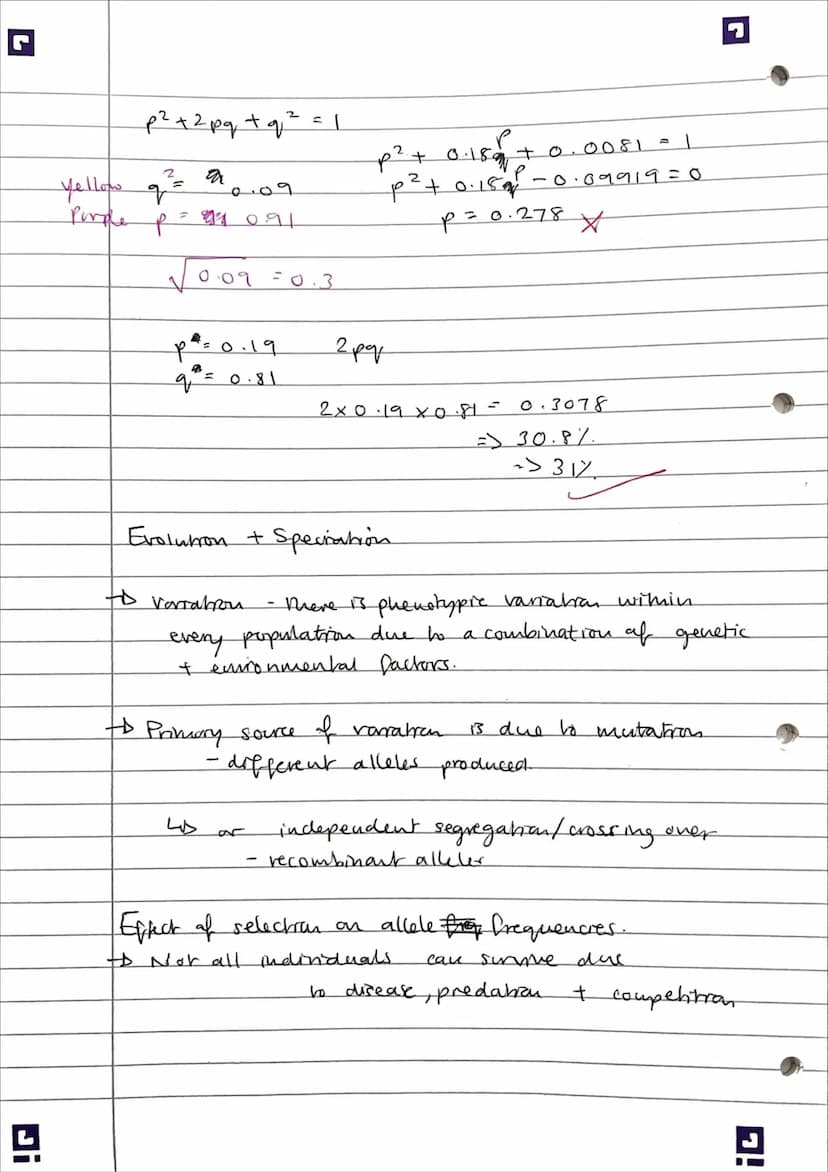 p² + 2pq + q² = 1
p² + 0.18p + 0.0081 = 1
Yellow q² = 0.09
p² + 0.18p - 0.09919 = 0
Purple p = 0.91
p = 0.278 ✗
√0.09 = 0.3
p = 0.19 2pq
q = 0.81
2 × 0.19 × 0.81 = 0.3078
=> 30.8%
=> 31% ✓
Evolution + Speciation
→ Variation - there is phenotypic variation within
every population due to a combination of genetic
+ environmental factors.
→ Primary source of variation is due to mutation
- different alleles produced.
↳ or independent segregation/crossing over
- recombinant alleles
Effect of selection on allele frequencies.
→ Not all individuals can survive due
to disease, predation + competition